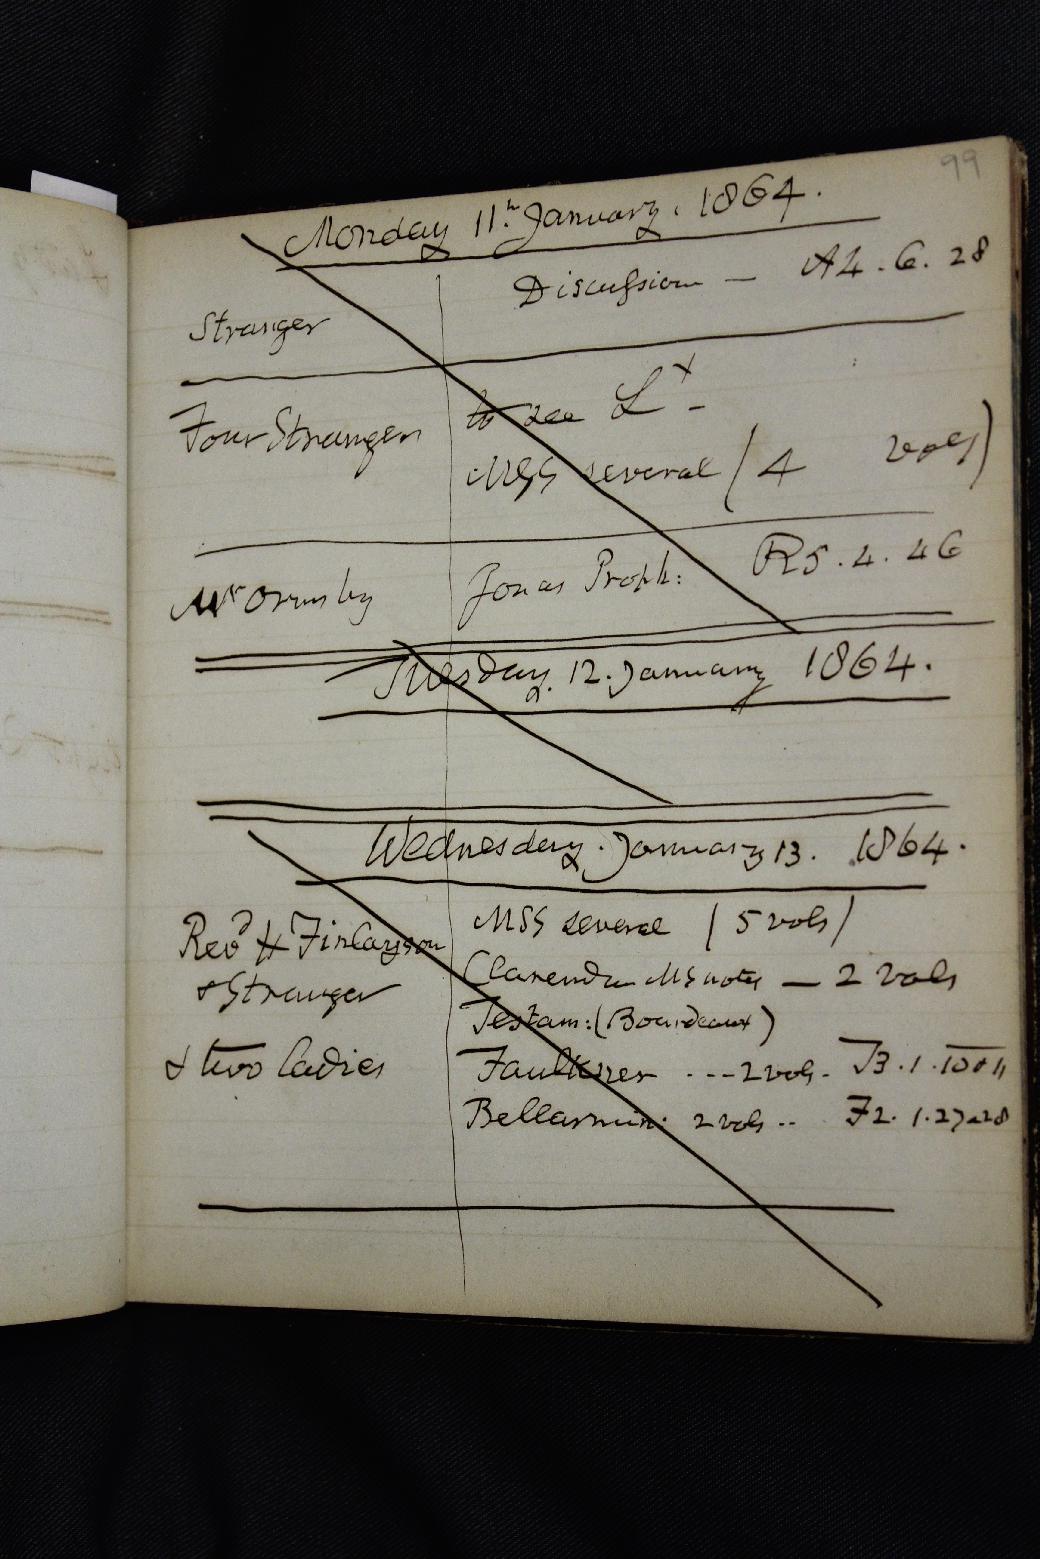 99
Monday 11th January. 1864.
Stranger Discussion — A4.6.28
Four Strangers to see Lx -
MSS several (4 vols)
Mr Ormsby Jonas Proph: R5.4.46
Tuesday. 12. January 1864.
Wednesday. January 13. 1864.
Revd H Finlayson MSS several (5 vols)
& Stranger Clarendon MS notes — 2 vols
Testam: (Bourdeaux)
& two ladies Faulkner --- 2 vols - B.1.10 & 11
Bellarmin. 2 vols -- F2.1.27 & 28